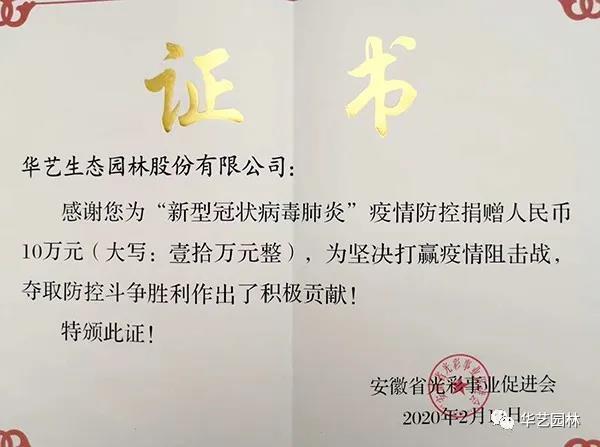 证书
华艺生态园林股份有限公司：
感谢您为“新型冠状病毒肺炎”疫情防控捐赠人民币
10万元（大写：壹拾万元整），为坚决打赢疫情阻击战，
夺取防控斗争胜利作出了积极贡献！
特颁此证！
安徽省光彩事业促进会
2020年2月1日
华艺园林